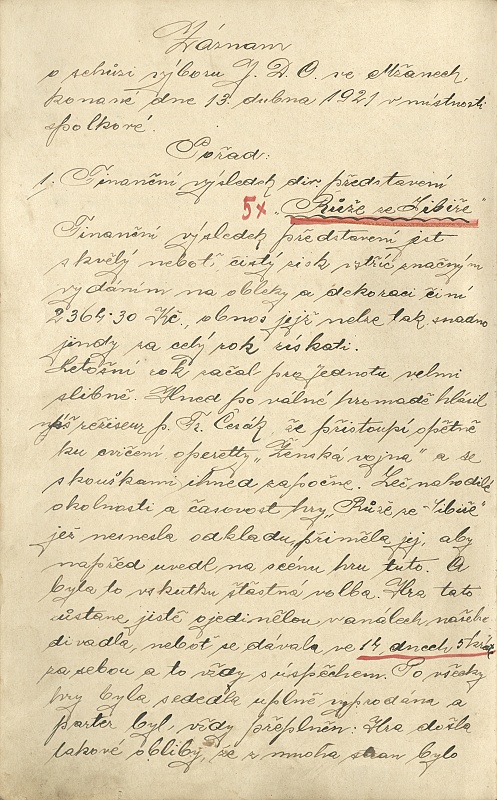 Záznam
o schůzi výboru J. D. O. ve Mžanech,
konané dne 13. dubna 1921 v místnosti
spolkové.
Pořad:
1. Finanční výsledek div. představení
5x „Růže ze Sibiře"
Finanční výsledek představení jest
skvělý neboť, čistý zisk vzdříc značným
vydáním na obleky a dekoraci činí
2364·30 Kč., obnos jejž nelze tak snadno
jindy za celý rok získati.
Letošní rok začal pro Jednotu velmi
slibně. Hned po valné hromadě hlásil
náš režiseur p. Fr. Čerák, že přistoupí opětně
ku cvičení operetty „Ženská vojna" a se
skouškami ihned započne. Leč nahodilé
okolnosti a časovost hry „Růže ze Sibiře"
jež nesnesla odkladu, přiměla jej, aby
napřed uvedl na scénu hru tuto. A
byla to vskutku šťastná volba. Hra tato
zůstane jistě ojedinělou v análech našeho
divadla, neboť se dávala ve 14 dnech 5 kráte
za sebou a to vždy s úspěchem. Po všecky
hry byla sedadla uplně vyprodána a
parter byl vždy přeplněn. Hra došla
takové obliby, že z mnoha stran bylo